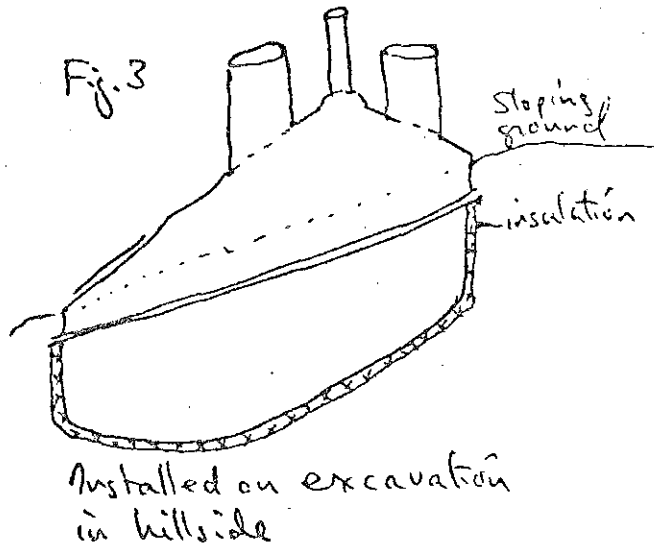 Fig. 3
Sloping
ground
insulation
Installed on excavation
in hillside